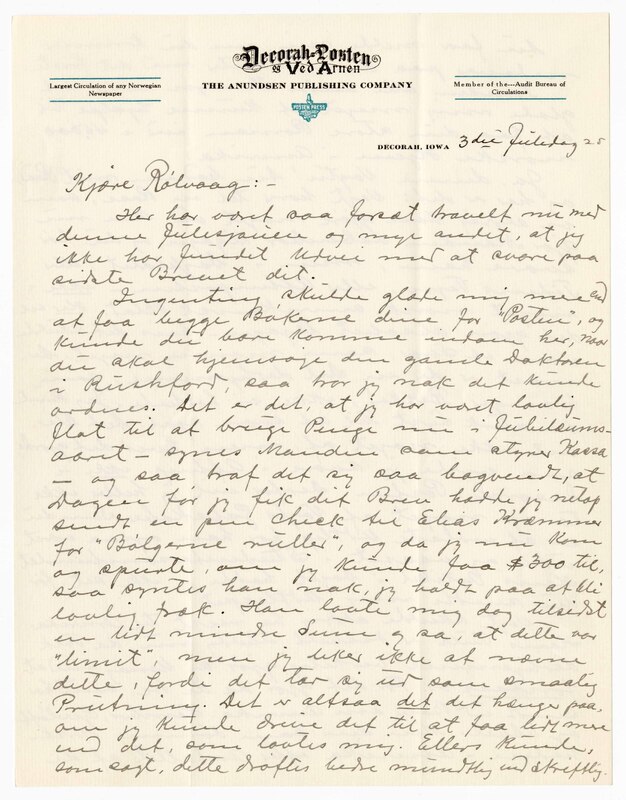 Decorah-Posten
og Ved Arnen
Largest Circulation of any Norwegian
Newspaper
THE ANUNDSEN PUBLISHING COMPANY
Member of the---Audit Bureau of
Circulations
POSTEN PRESS
DECORAH, IOWA 3die Juledag 25
Kjære Rölvaag:-
Her har været saa forsæt travelt nu med
denne Julesjauen og mye andet, at jeg
ikke har fundet Udvei med at svare paa
sidste Brevet dit.
Ingenting skulde glade mig mer end
at faa begge Bøkerne dine for "Posten", og
kunde du bare komme indom her, naar
du skal hjemsøge den gamle Doktoren
i Rushford, saa tror jeg nok det kunde
ordnes. Det er det, at jeg har været lovlig
flot til at bruge Penge nu i Jubilæums-
aaret – synes Manden som styrer Kassa
– og saa traf det sig saa bagvendt, at
Dagen før jeg fik dit Brev hadde jeg netop
sendt en pen Check til Elias Kræmmer
for "Bølgerne ruller", og da jeg nu kom
og spurte, om jeg kunde faa $300 til,
saa syntes han nok, jeg holdt paa at bli
lovlig fræk. Han lovte mig dog tilsidst
en lidt mindre Sum og sa, at dette var
"limit", men jeg liker ikke at nævne
dette, fordi det tar sig ud som smaalig
Prutning. Det er altsaa det det hænger paa,
om jeg kunde drive det til at faa lidt mere
end det, som lovtes mig. Ellers kunde,
som sagt, dette drøftes bedre mundtlig end skriftlig.